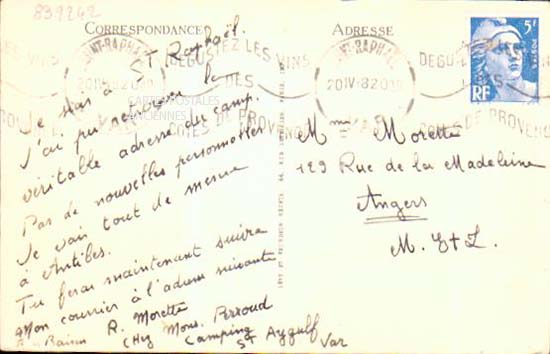 839242
CORRESPONDANCE
ADRESSE
5F
POSTES
RF
SAINT-RAPHAEL
DEGUSTEZ LES VINS
DES
COTES DE PROVENCE
20 IV
VAR
CARTES POSTALES
ANCIENNES
Je suis à St Raphaël.
J'ai pu retrouver la
véritable adresse du camp.
Pas de nouvelles personnelles
Je vais tout de même
à Antibes.
Tu feras maintenant suivre
mon courrier à l'adresse suivante
R. Morette
Chez Mons. Perroud
Camping
St Aygulf
Var
Baisers
Mme Morette
129 Rue de la Madeleine
Angers
M. & L.